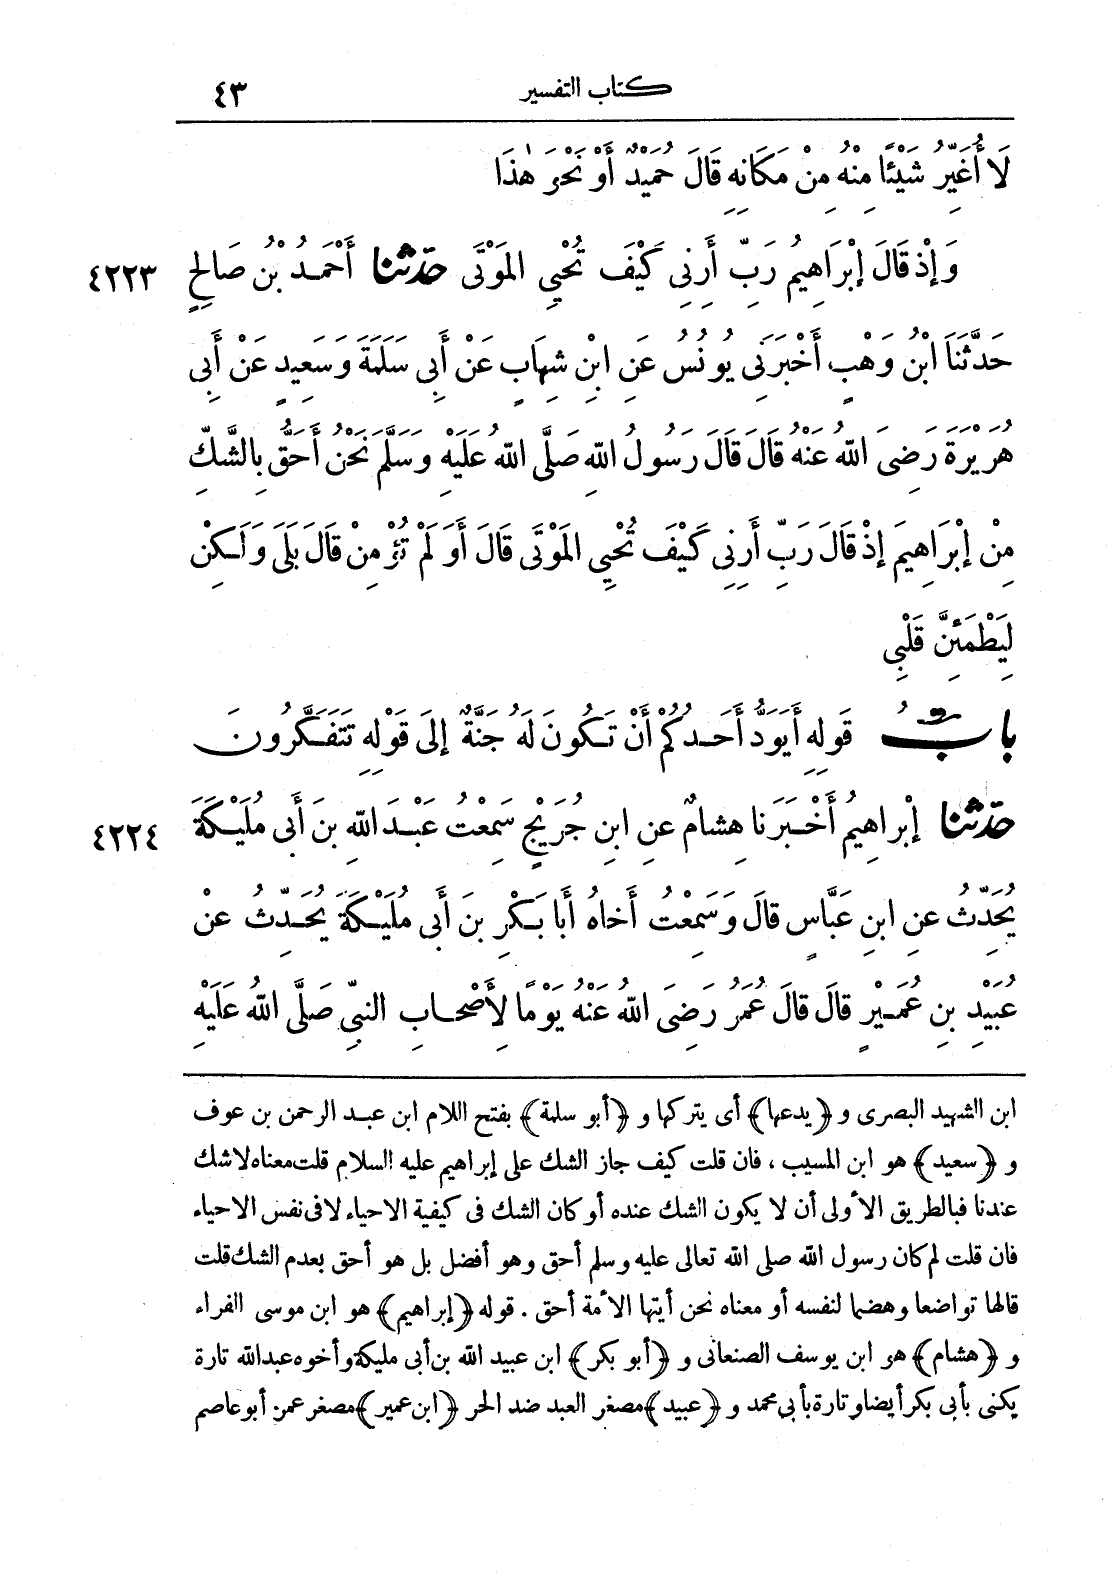 كتاب التفسير ٤٣
لَا أُغَيِّرُ شَيْئًا مِنْهُ مِنْ مَكَانِهِ قَالَ حُمَيْدٌ أَوْ نَحْوَ هٰذَا
وَإِذْ قَالَ إِبْرَاهِيمُ رَبِّ أَرِنِى كَيْفَ تُحْيِى المَوْتَى حَدَّثَنَا أَحْمَدُ بْنُ صَالِحٍ ٤٢٢٣
حَدَّثَنَا ابْنُ وَهْبٍ أَخْبَرَنِى يُونُسُ عَنِ ابْنِ شِهَابٍ عَنْ أَبِى سَلَمَةَ وَسَعِيدٍ عَنْ أَبِى
هُرَيْرَةَ رَضِىَ اللهُ عَنْهُ قَالَ قَالَ رَسُولُ اللهِ صَلَّى اللهُ عَلَيْهِ وَسَلَّمَ نَحْنُ أَحَقُّ بِالشَّكِّ
مِنْ إِبْرَاهِيمَ إِذْ قَالَ رَبِّ أَرِنِى كَيْفَ تُحْيِى المَوْتَى قَالَ أَوَ لَمْ تُؤْمِنْ قَالَ بَلَى وَلَكِنْ
لِيَطْمَئِنَّ قَلْبِى
بابُ قَوْلِهِ أَيَوَدُّ أَحَدُكُمْ أَنْ تَكُونَ لَهُ جَنَّةٌ إِلَى قَوْلِهِ تَتَفَكَّرُونَ
حَدَّثَنَا إِبْراهِيمُ أَخْبَرَنا هِشامٌ عَنِ ابنِ جُرَيْجٍ سَمِعْتُ عَبْدَ اللهِ بنَ أَبِى مُلَيْكَةَ ٤٢٢٤
يُحَدِّثُ عَنِ ابنِ عَبَّاسٍ قالَ وَسَمِعْتُ أَخاهُ أَبا بَكْرِ بنَ أَبِى مُلَيْكَةَ يُحَدِّثُ عَنْ
عُبَيْدِ بنِ عُمَيْرٍ قالَ قالَ عُمَرُ رَضِىَ اللهُ عَنْهُ يَوْمًا لِأَصْحابِ النبىِّ صَلَّى اللهُ عَلَيْهِ
ابن الشهيد البصرى و ﴿يدعها﴾ أى يتركها و ﴿أبو سلمة﴾ بفتح اللام ابن عبد الرحمن بن عوف
و ﴿سعيد﴾ هو ابن المسيب ، فان قلت كيف جاز الشك على إبراهيم عليه السلام قلت معناه لا شك
عندنا فبالطريق الأولى أن لا يكون الشك عنده أو كان الشك فى كيفية الاحياء لا فى نفس الاحياء
فان قلت لم كان رسول الله صلى الله تعالى عليه وسلم أحق وهو أفضل بل هو أحق بعدم الشك قلت
قالها تواضعا وهضما لنفسه أو معناه نحن أيتها الأمة أحق . قوله ﴿إبراهيم﴾ هو ابن موسى الفراء
و ﴿هشام﴾ هو ابن يوسف الصنعانى و ﴿أبو بكر﴾ ابن عبيد الله بن أبى مليكة وأخوه عبد الله تارة
يكنى بأبى بكر أيضا وتارة بأبى محمد و ﴿عبيد﴾ مصغر العبد ضد الحر ﴿ابن عمير﴾ مصغر عمر أبو عاصم